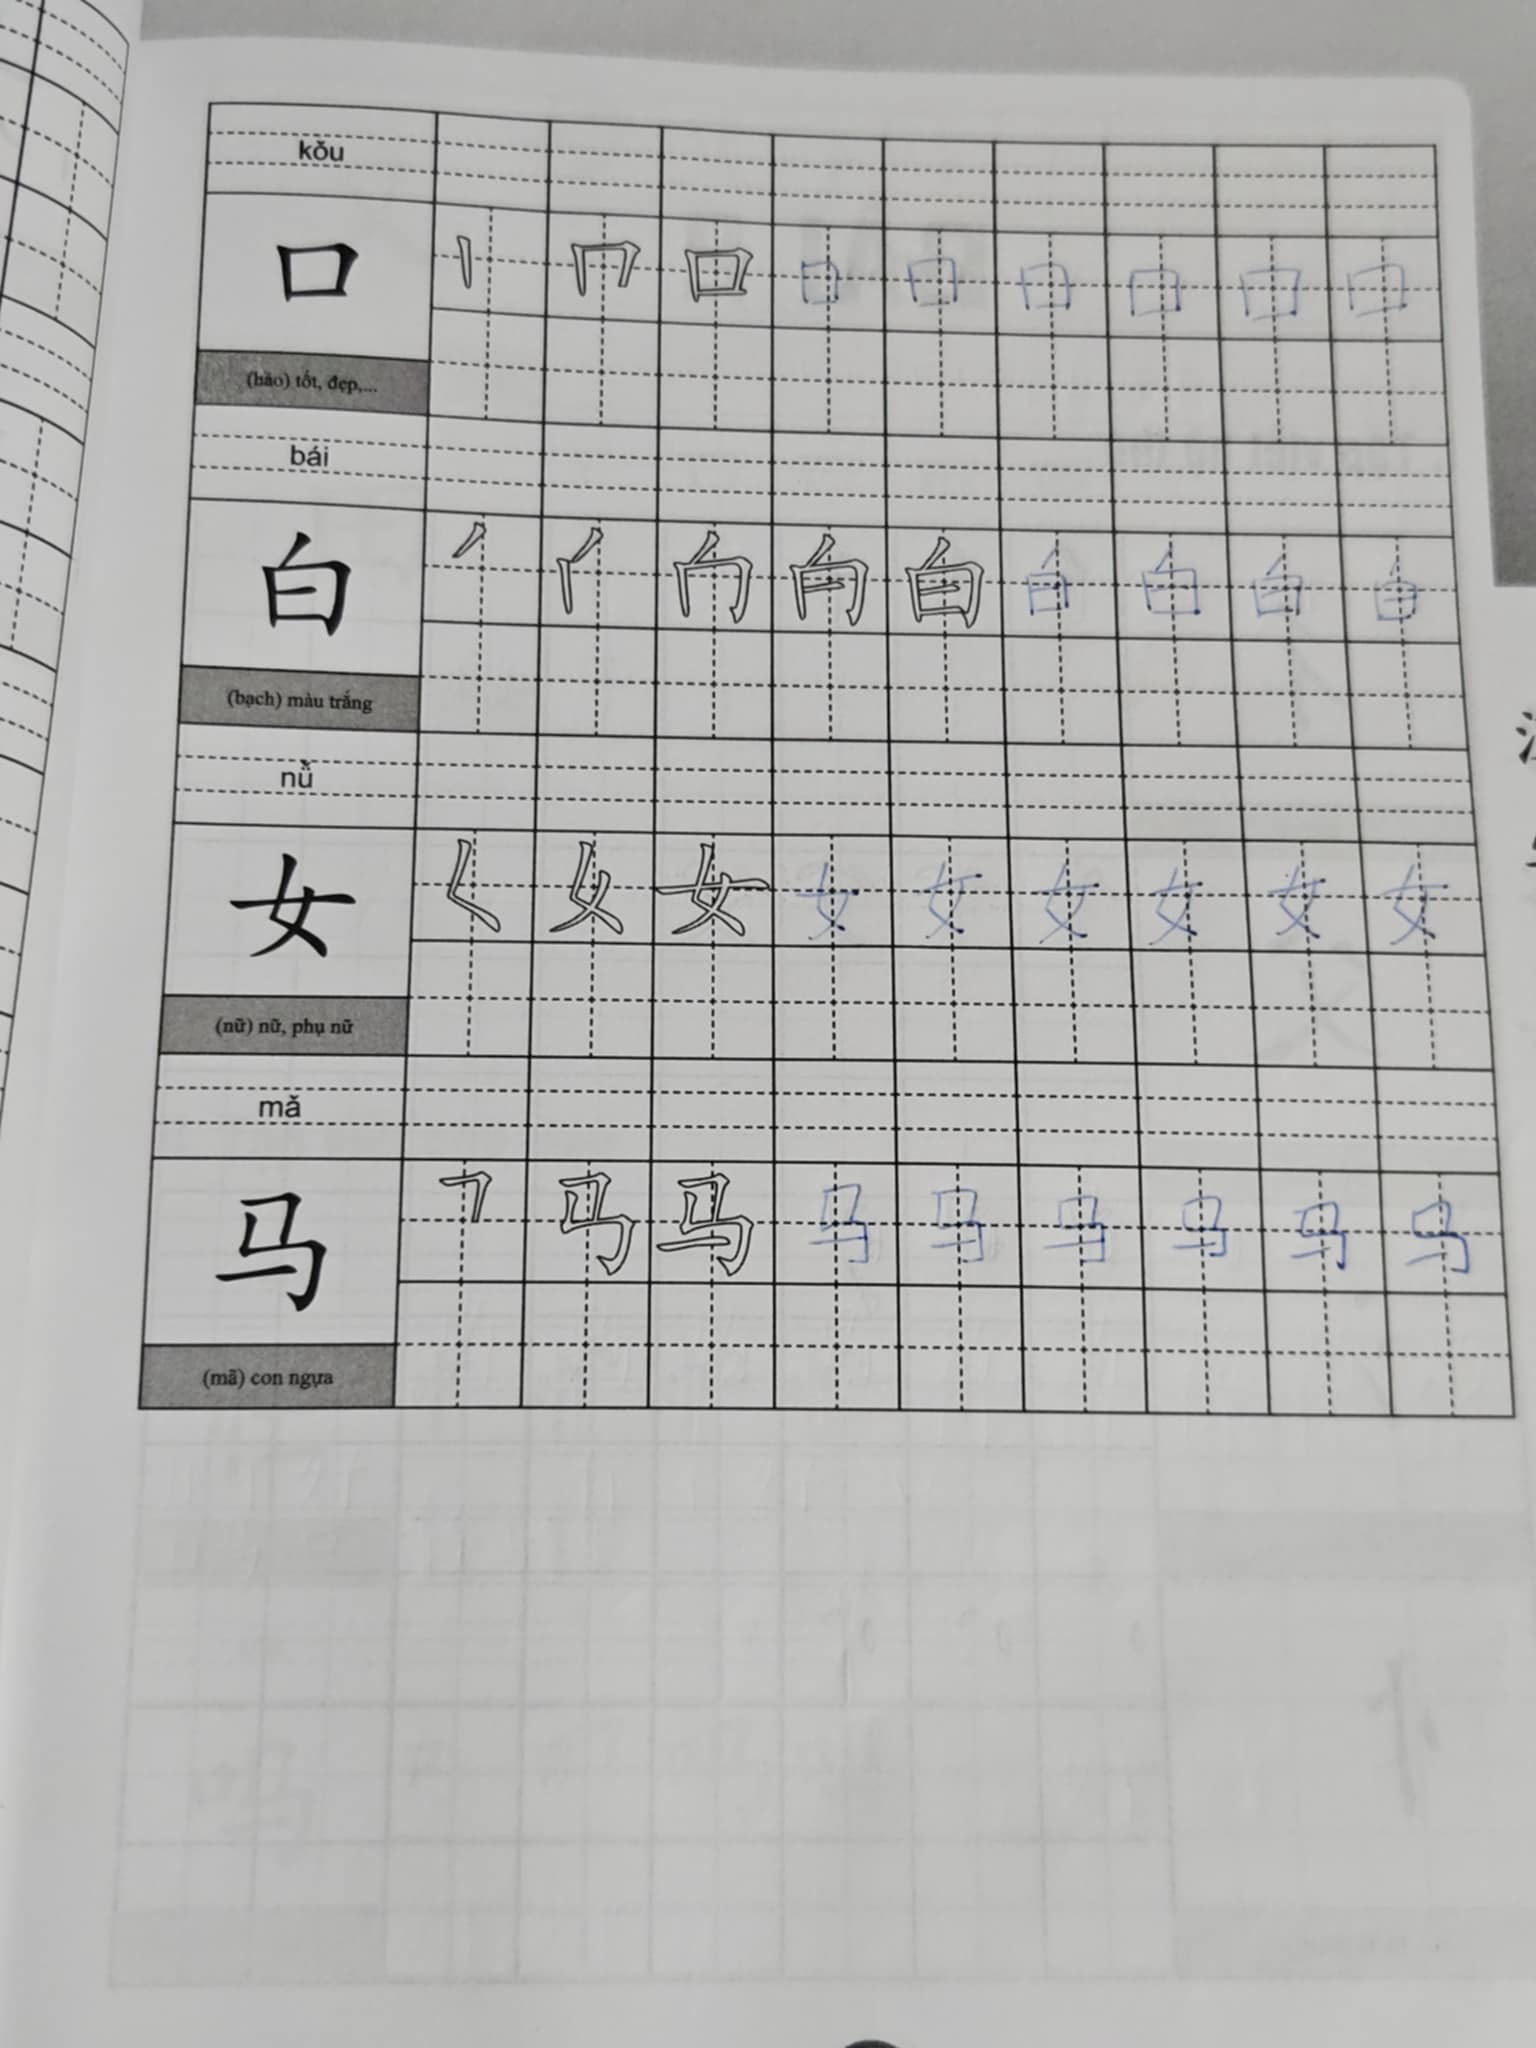 kǒu
口 丨 冂 口 口 口 口 口 口 口
(hảo) tốt, đẹp,...
bái
白 白 白 白 白 白
(bạch) màu trắng
nǚ
女 女 女 女 女 女 女 女
(nữ) nữ, phụ nữ
mǎ
马 马 马 马 马 马 马 马
(mã) con ngựa